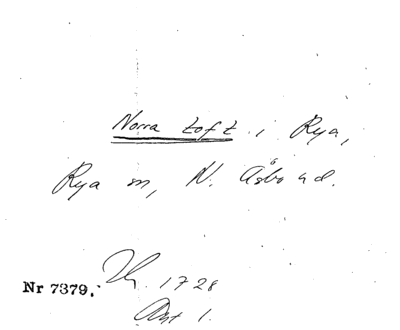 Norra toft i Rya,
Rya sn, N. Åsbo hd.
Nr 7379. 1728
Akt 1.